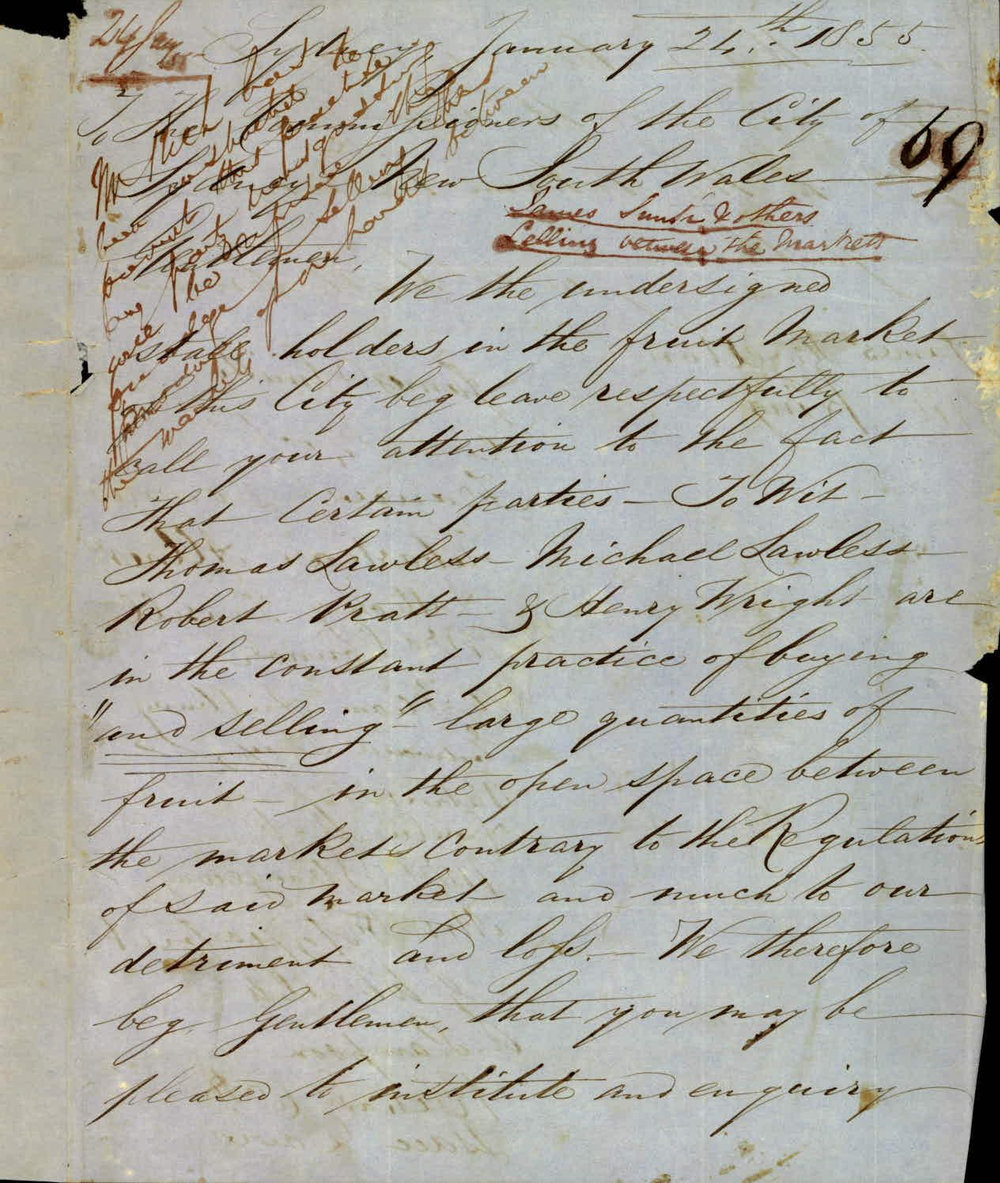 24 Jany
Sydney January 24th 1855
To The Commissioners of the City of
Sydney New South Wales
69
James Smith & others
Selling between the Markets
Gentlemen,
We the undersigned
stall holders in the fruit Market
of this City beg leave respectfully to
call your attention to the fact
that Certain parties - To Wit -
Thomas Lawless - Michael Lawless -
Robert Pratt - & Henry Wright are
in the constant practice of buying
"and selling" large quantities of
fruit - in the open space between
the markets contrary to the Regulations
of said market and much to our
detriment and loss. - We therefore
beg, Gentlemen, that you may be
pleased to institute and enquiry
Mr
been
been
permit
any
selling
of
between
the markets